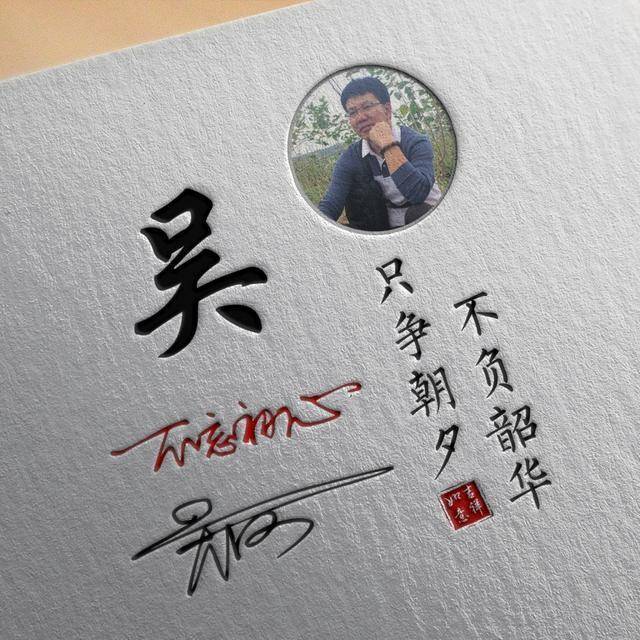 吴
只争朝夕
不负韶华
不忘初心
吉祥
如意